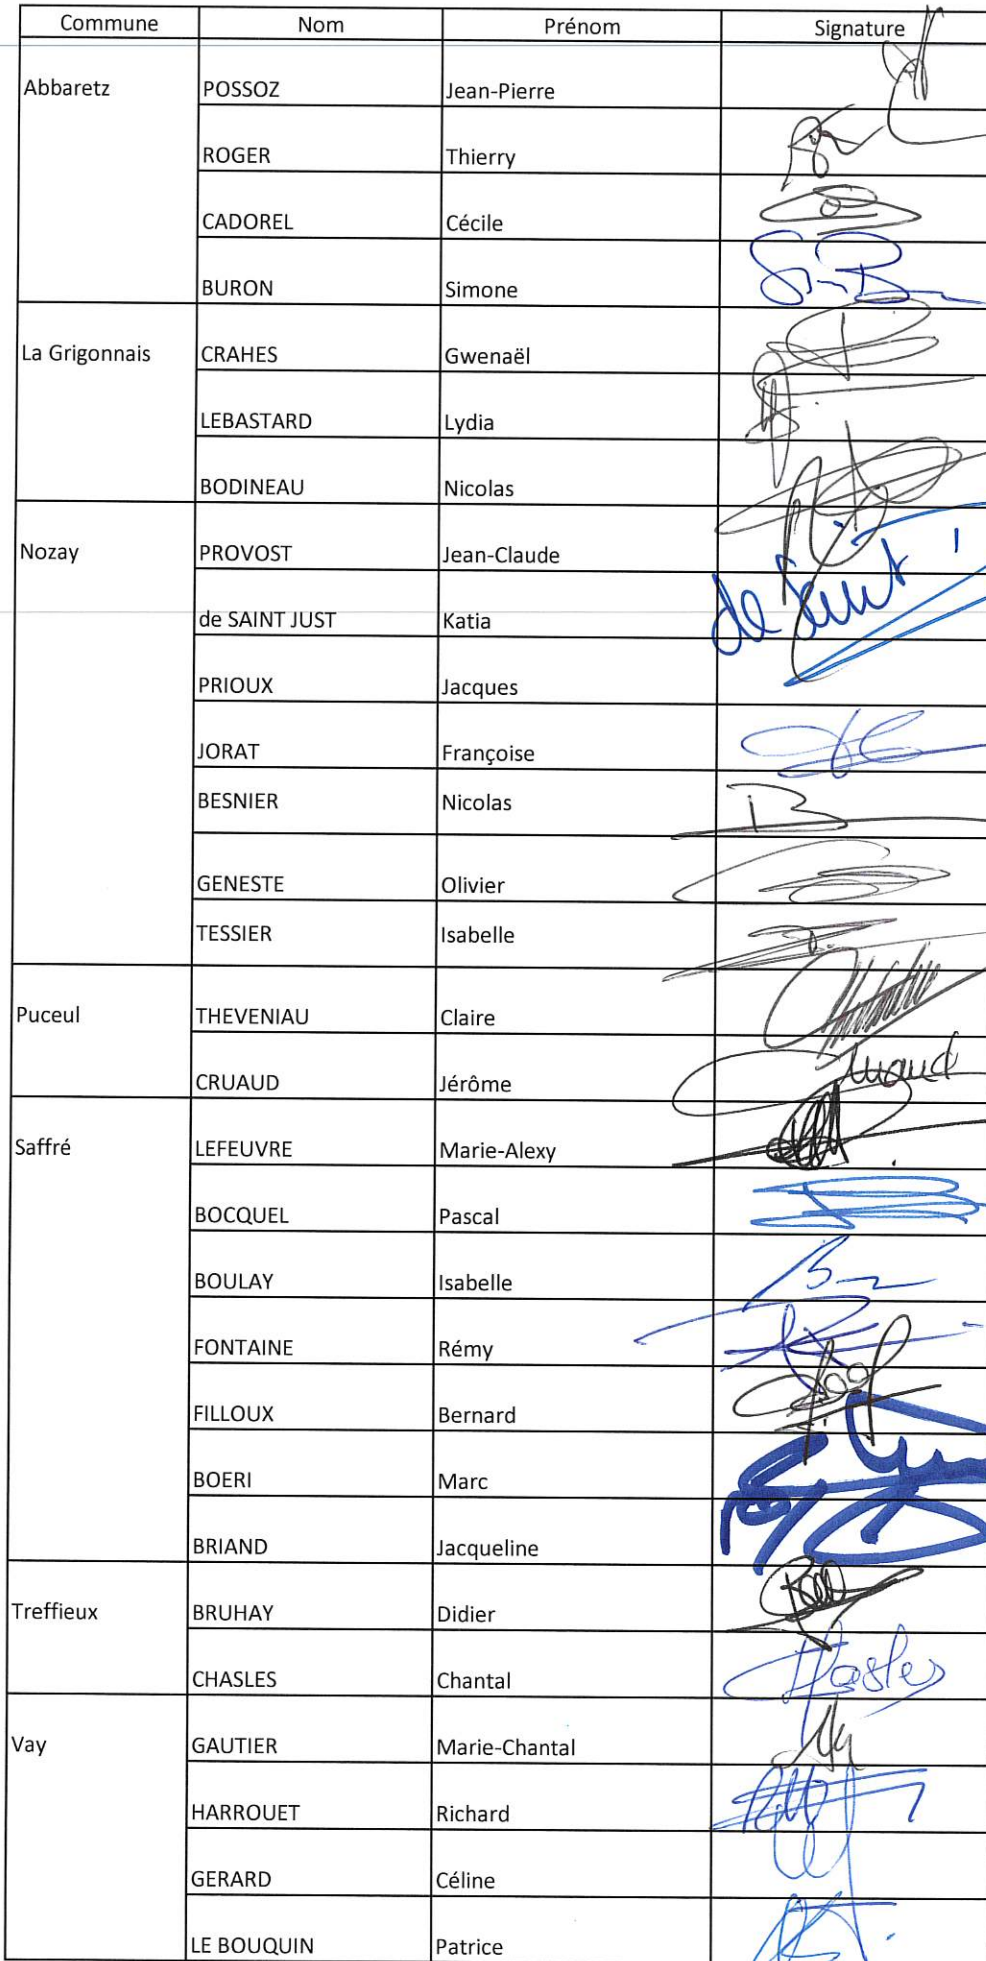 Commune Nom Prénom Signature
Abbaretz POSSOZ Jean-Pierre
ROGER Thierry
CADOREL Cécile
BURON Simone
La Grigonnais CRAHES Gwenaël
LEBASTARD Lydia
BODINEAU Nicolas
Nozay PROVOST Jean-Claude
de SAINT JUST Katia de Saint
PRIOUX Jacques
JORAT Françoise
BESNIER Nicolas
GENESTE Olivier
TESSIER Isabelle
Puceul THEVENIAU Claire
CRUAUD Jérôme Cruaud
Saffré LEFEUVRE Marie-Alexy
BOCQUEL Pascal
BOULAY Isabelle
FONTAINE Rémy
FILLOUX Bernard
BOERI Marc
BRIAND Jacqueline
Treffieux BRUHAY Didier
CHASLES Chantal Chasles
Vay GAUTIER Marie-Chantal
HARROUET Richard
GERARD Céline
LE BOUQUIN Patrice